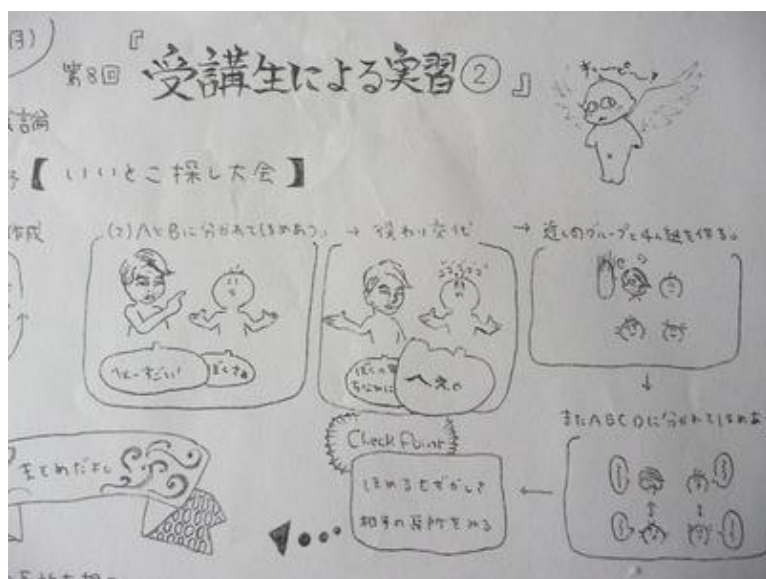 月)
第8回『受講生による実習②』
キューピー♪
論
【いいとこ探し大会】
作成
(2)AとBに分かれてほめあう。→ 役わり交代 → 近くのグループと4人組を作る。
へぇーすごい!
ぼくさぁ
ちなみに
へぇ。
↓
またABCDに分かれてほめあ
Check Point
ほめるむずかしさ
相手の長所をみる
←
まとめだよ